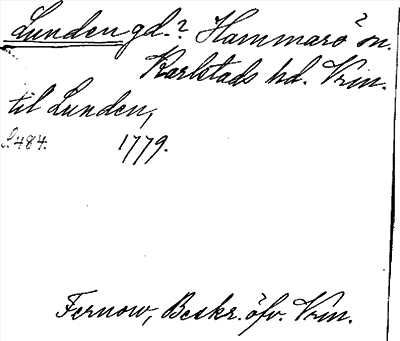 Lunden gd.? Hammarö? sn.
Karlstads hd. Vrm.
til Lunden,
S. 484. 1779.
Fernow, Beskr. öfv. Vrm.